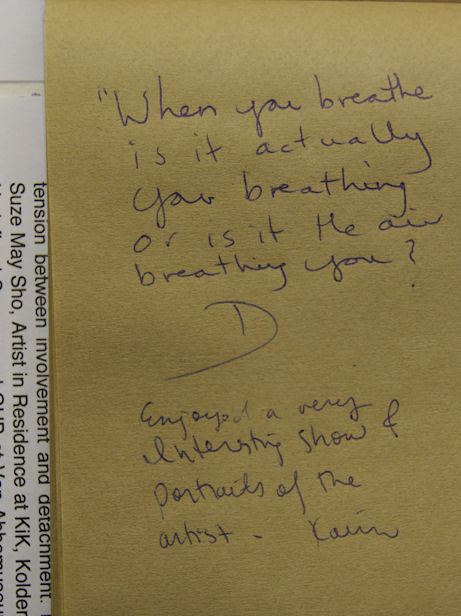 "When you breathe
is it actually
you breathing
or is it the air
breathing you?
D
Enjoyed a very
Interesting show &
portraits of the
artist - Karin
tension between involvement and detachment.
Suze May Sho, Artist in Residence at KiK, Kolder